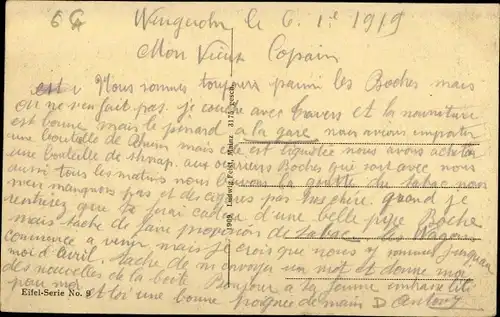 6 G
Wengerohr le 6. 1er 1919
Mon Vieux Copain
Nous sommes toujours parmi les Boches mais
on ne s'en fait pas. je couche avec et la nourriture
est bonne mais le pinard a la gare nous avions
une bouteille de mais est liquidée nous avons acheter
une bouteille de shnap. aux ouvriers Boches qui sont avec nous
aussi tous les matins nous buvons la goutte du tabac nous
n'en manquons pas et des cigares pas très chère. quand je
rentirez que je ferai cadeau d'une belle pipe Boche
mais tache de faire provision de tabac. les Wagons
commence a venir mais je crois que nous y sommes jusquau
moi d'avril. tache de m'envoyer un mot et donne moi
des nouvelles de la boite. Bonjour a la femme
pour moi et toi une bonne poignée de main D
1909 Ludwig Feist, Mainz 3175 gesch.
Eifel-Serie No. 9